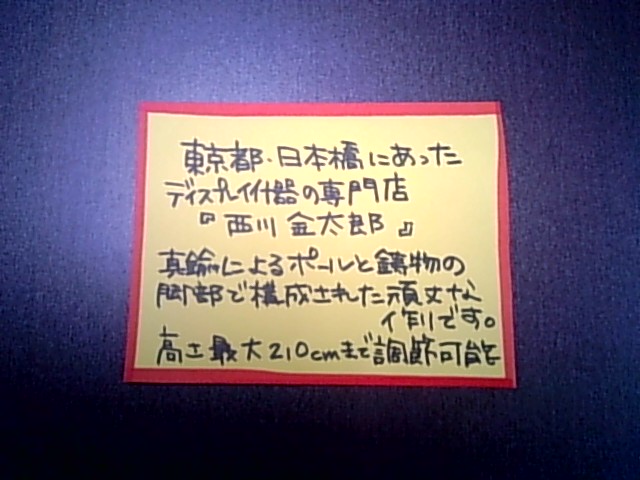 東京都・日本橋にあった
ディスプレイ什器の専門店
『西川金太郎』
真鍮によるポールと鋳物の
脚部で構成された頑丈な
作りです。
高さ最大210cmまで調節可能を